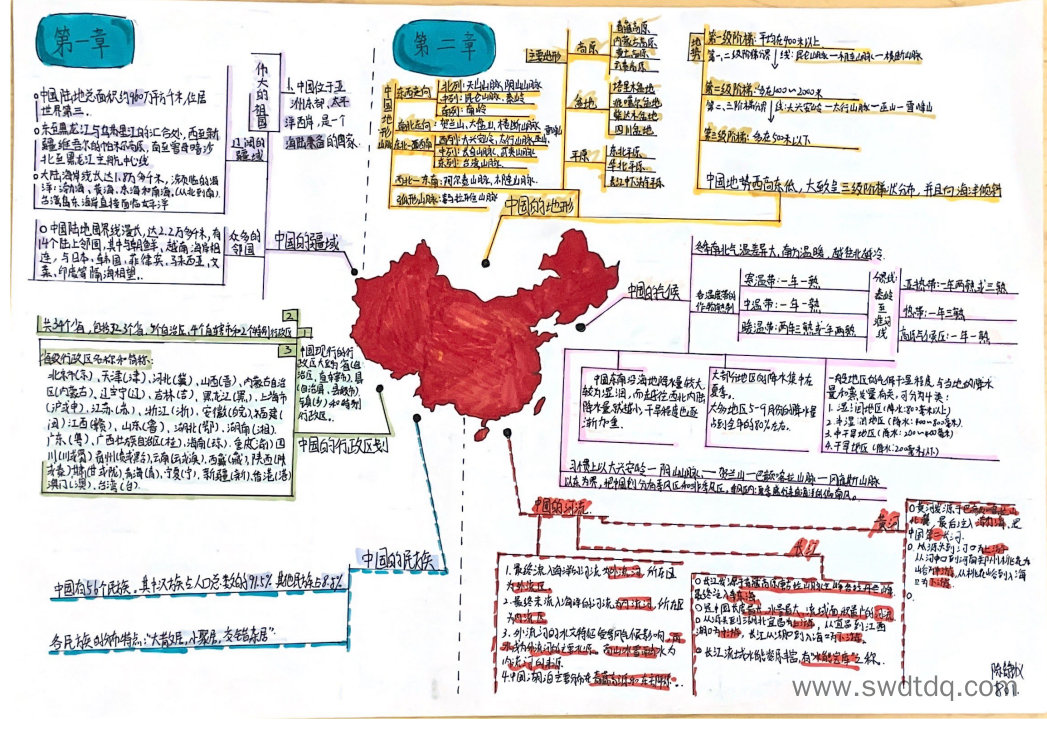 第一章
伟大的祖国
1、中国位于亚
洲东部、太平
洋西岸,是一个
海陆兼备的国家.
辽阔的疆域
中国陆地总面积约960万平方千米,位居
世界第三.
东至黑龙江与乌苏里江的汇合处,西至新
疆维吾尔的帕米尔高原,南至曾母暗沙
北至黑龙江主航中心线
大陆海岸线长达1.8万多千米,濒临的海
洋:渤海、黄海、东海和南海.(从北到南).
台湾岛东海岸直接面临太平洋
众多的
邻国
中国陆地国界线漫长,达2.2万多千米,有
14个陆上邻国,其中与朝鲜、越南海岸相
连,与日本、韩国、菲律宾、马来西亚、文
莱、印度尼隔海相望.
中国的疆域
共34个省,包括23个省,5个自治区,4个直辖市和2个特别行政区
2
1
3
省级行政区名称和简称:
北京市(京)、天津(津)、河北(冀)、山西(晋)、内蒙古自治
区(内蒙古)、辽宁(辽)、吉林(吉)、黑龙江(黑)、上海市
(沪或申)、江苏(苏)、浙江(浙)、安徽(皖)、福建
(闽)、江西(赣)、山东(鲁)、湖北(鄂)、湖南(湘).
广东(粤)、广西壮族自治区(桂)、海南(琼)、重庆(渝)四
川(川或蜀)贵州(贵或黔)、云南(云或滇)、西藏(藏)、陕西(陕
或秦)甘肃(甘或陇)青海(青)、宁夏(宁)、新疆(新)、香港(港)
澳门(澳)、台湾(台).
中国现行的行
政区大致为省(自
治区、直辖市)、县
(自治县、县级市)、
乡镇(乡)和特别
行政区.
中国的行政区划
中国的民族
中国有56个民族,其中汉族占人口总数的91.5% 其他民族占8.5%
各民族的分布特点:“大散居,小聚居,交错杂居”.
第二章
主要地形
高原
青藏高原
内蒙古高原
黄土高原
云贵高原
盆地
塔里木盆地
准噶尔盆地
柴达木盆地
四川盆地
平原
东北平原
华北平原
长江中下游平原
中国地形
东西走向
北列:天山山脉、阴山山脉
中列:昆仑山脉、秦岭
南列:南岭
南北走向:贺兰山、六盘山、横断山脉
东北—西南向
西列:大兴安岭、太行山脉、巫山、雪峰山
中列:长白山脉、武夷山脉
东列:台湾山脉
西北—东南:阿尔泰山脉、祁连山脉
弧形山脉:喜马拉雅山脉
中国的地形
地势
第一级阶梯:平均在4000米以上
第一、二级阶梯分界线:昆仑山脉—祁连山脉—横断山脉
第二级阶梯:多在1000~2000米
第二、三阶梯分界线:大兴安岭—太行山脉—巫山—雪峰山
第三级阶梯:多在500米以下
中国地势西高东低,大致呈三级阶梯状分布,并且向海洋倾斜
中国的气候
冬季南北气温差异大,南方温暖,越往北越冷.
各温度带的
作物熟制
寒温带:一年一熟
中温带:一年一熟
暖温带:两年三熟或一年两熟
分界线
秦岭
至
淮河
一线
亚热带:一年两熟或三熟
热带:一年三熟
高原气候区:一年一熟
中国东南沿海地降水量较大
较为湿润,而越往西北内陆
降水量就越小,干旱程度也逐
渐加重.
大部分地区的降水集中在
夏季.
大部地区5-9月份的降水量
占到全年的80%左右.
一般地区的气候干湿程度,与当地的降水
量和蒸发量有关,可分为4类:
1.湿润地区(降水:800毫米以上)
2.半湿润地区(降水:400~800毫米)
3.半干旱地区(降水:200~400毫米)
4.干旱地区(降水:200毫米以下)
习惯上以大兴安岭—阴山山脉—贺兰山—巴颜喀拉山脉—冈底斯山脉
以东为界,把中国划分为季风区和非季风区,
中国的河流.
1.最终流入海洋的河流为外流河,所在区
为外流区
2.最终未流入海洋的河流为内流河,所在区
为内流区
3.外流河的水文特征受季风气候影响,
为内流河的来源
4.中国湖泊主要分布在青藏高原和东部平原.
黄河
黄河发源于巴颜喀拉山
北麓,最后注入渤海,是
中国第二长河.
从源头到河口为上游
为下游
长江
最终注入东海
是中国长度最大、水量最大、流域面积最广的河流
从源头到湖北宜昌为上游,从宜昌到江西
湖口为中游,长江从湖口到入海口为下游.
长江流域水能资源丰富,有“水能宝库”之称.
801
www.swdtdq.com